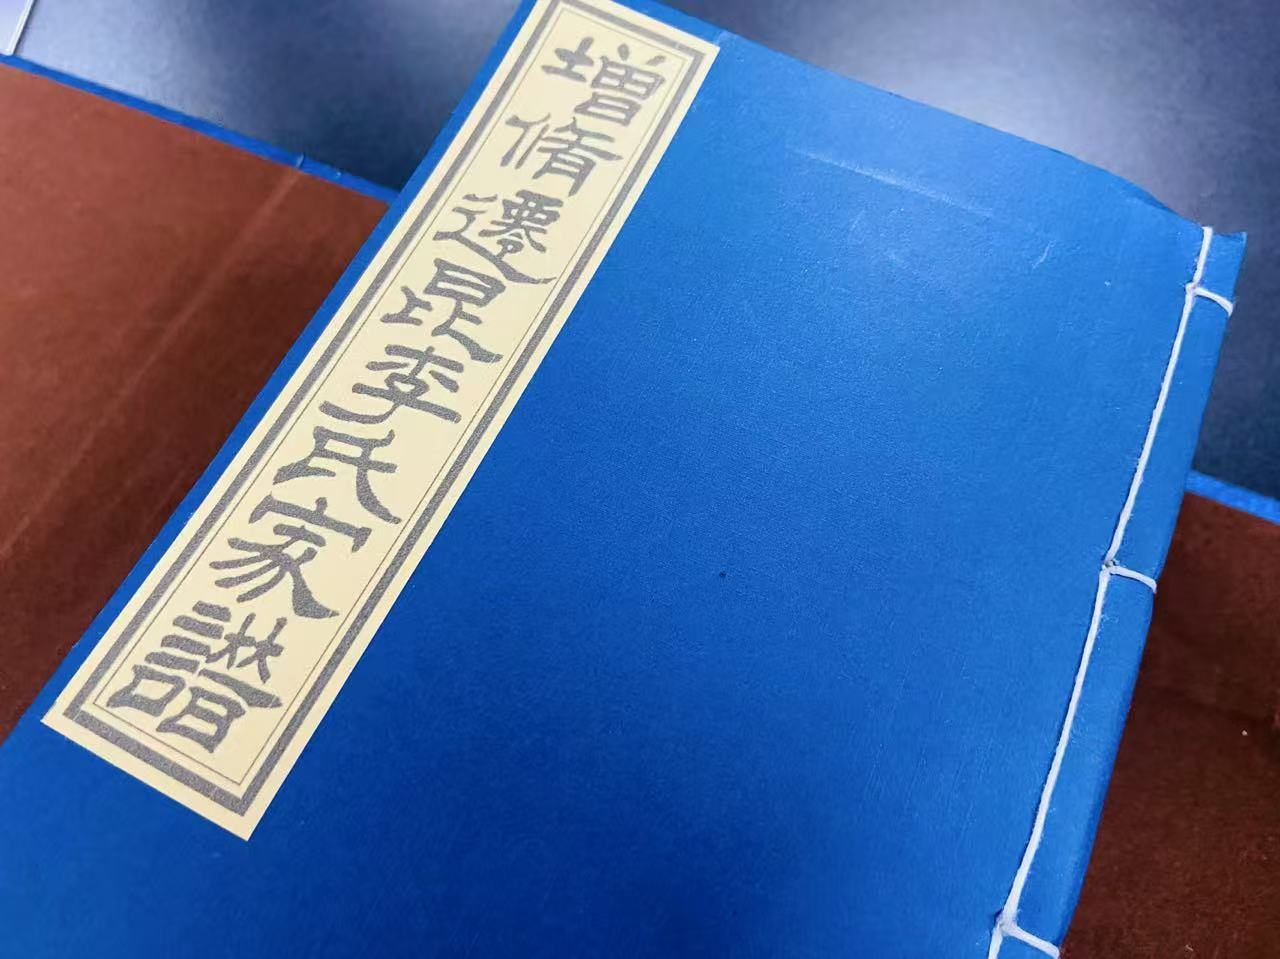 增脩遷昆李氏家譜